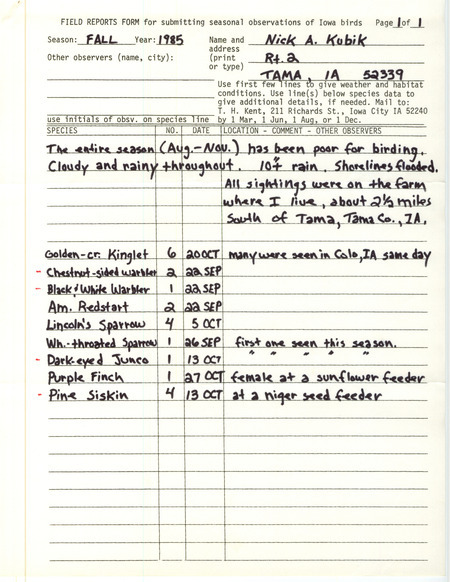 FIELD REPORTS FORM for submitting seasonal observations of Iowa birds Page 1 of 1
Season: FALL Year: 1985 Name and Nick A. Kubik
address
Other observers (name, city): (print Rt. 2
or type)
TAMA, IA 52339
Use first few lines to give weather and habitat
conditions. Use line(s) below species data to
give additional details, if needed. Mail to:
T. H. Kent, 211 Richards St., Iowa City IA 52240
use initials of obsv. on species line by 1 Mar, 1 Jun, 1 Aug, or 1 Dec.
SPECIES NO. DATE LOCATION - COMMENT - OTHER OBSERVERS
The entire season (Aug.-Nov.) has been poor for birding.
Cloudy and rainy throughout. 10"+ rain. Shorelines flooded.
All sightings were on the farm
where I live, about 2½ miles
South of Tama, Tama Co., IA.
Golden-cr. Kinglet 6 20 OCT many were seen in Colo, IA same day
- Chestnut-sided warbler 2 22 SEP
- Black & White Warbler 1 22 SEP
Am. Redstart 2 22 SEP
Lincoln's Sparrow 4 5 OCT
Wh.-throated Sparrow 1 26 SEP first one seen this season.
- Dark-eyed Junco 1 13 OCT " " " " "
Purple Finch 1 27 OCT female at a sunflower feeder
- Pine Siskin 4 13 OCT at a niger seed feeder